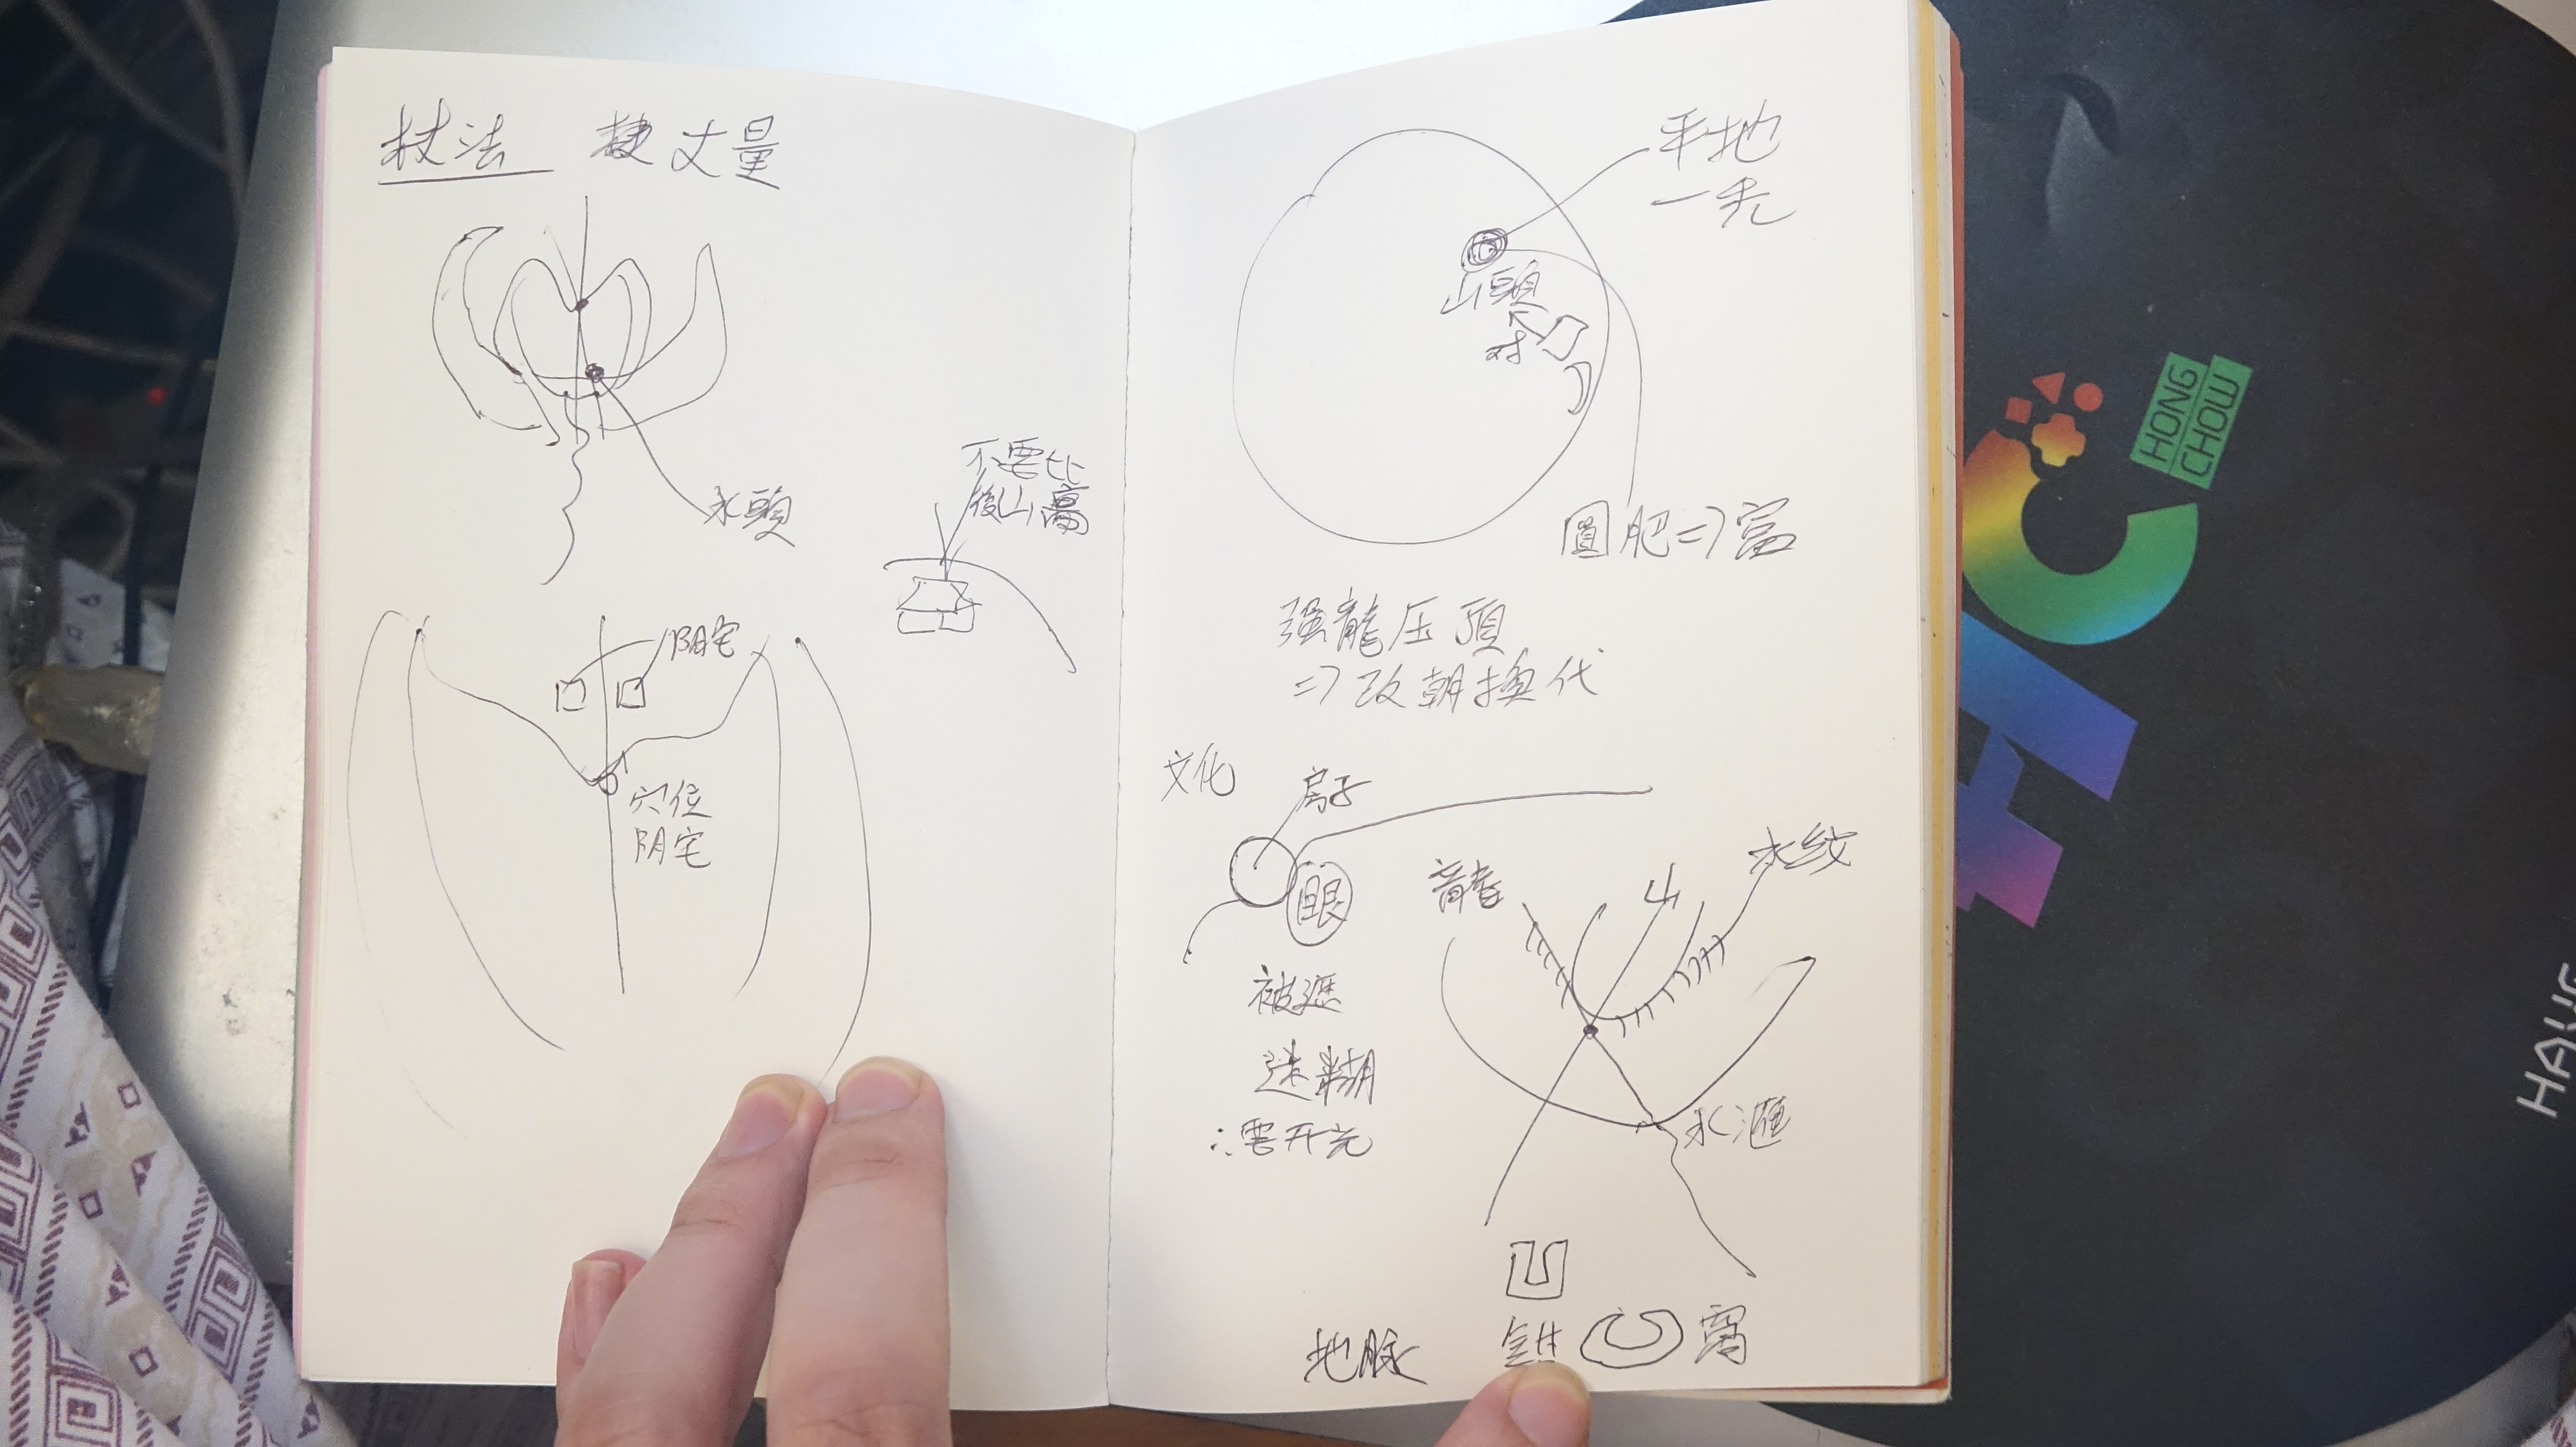 杖法 丈量
水頭
不要比
後山高
阴宅
穴位
阴宅
平地
一禿
山頭
对
圓肥⇒富
强龍压頂
⇒改朝換代
文化
房子
眼
被遮
迷糊
∴要开光
龍脊
山
水纹
水滙
地脉
鉗
窩
HONG
CHOW
HC